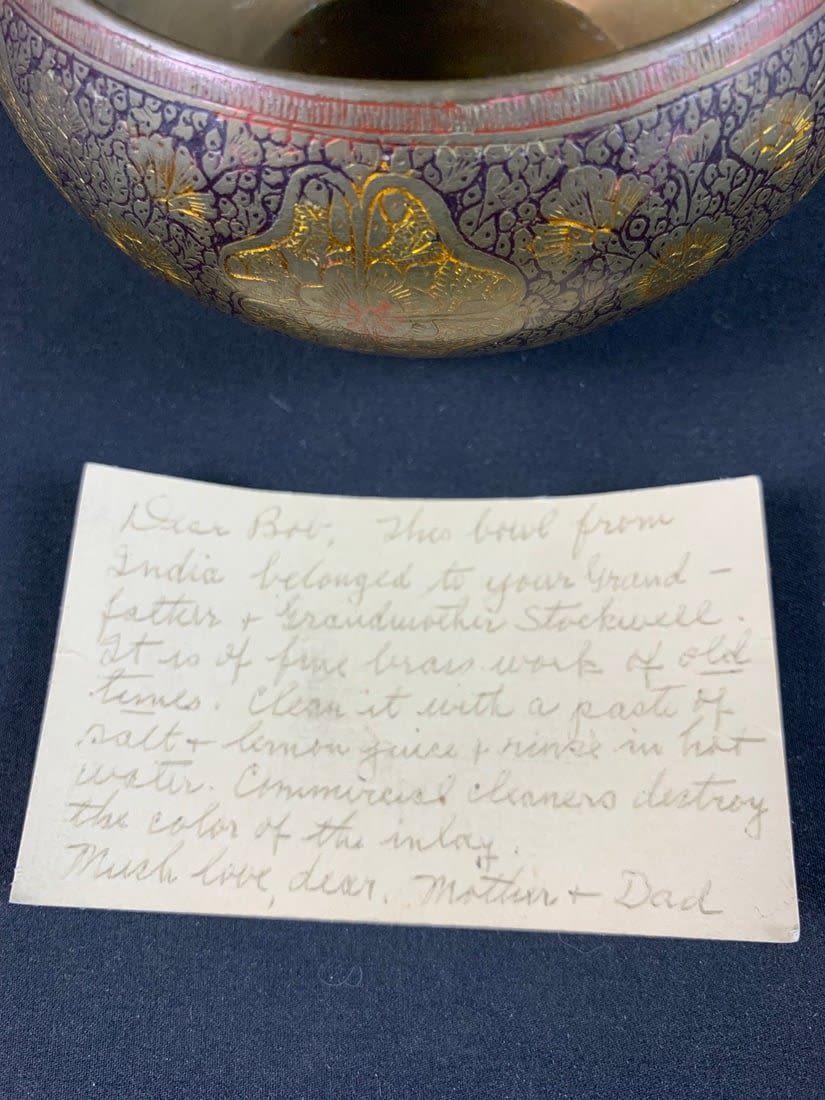 Dear Bob, This bowl from
India belonged to your Grand-
father + Grandmother Stockwell.
It is of fine brass work of old
times. Clean it with a paste of
salt + lemon juice + rinse in hot
water. Commercial cleaners destroy
the color of the inlay.
Much love, dear. Mother + Dad